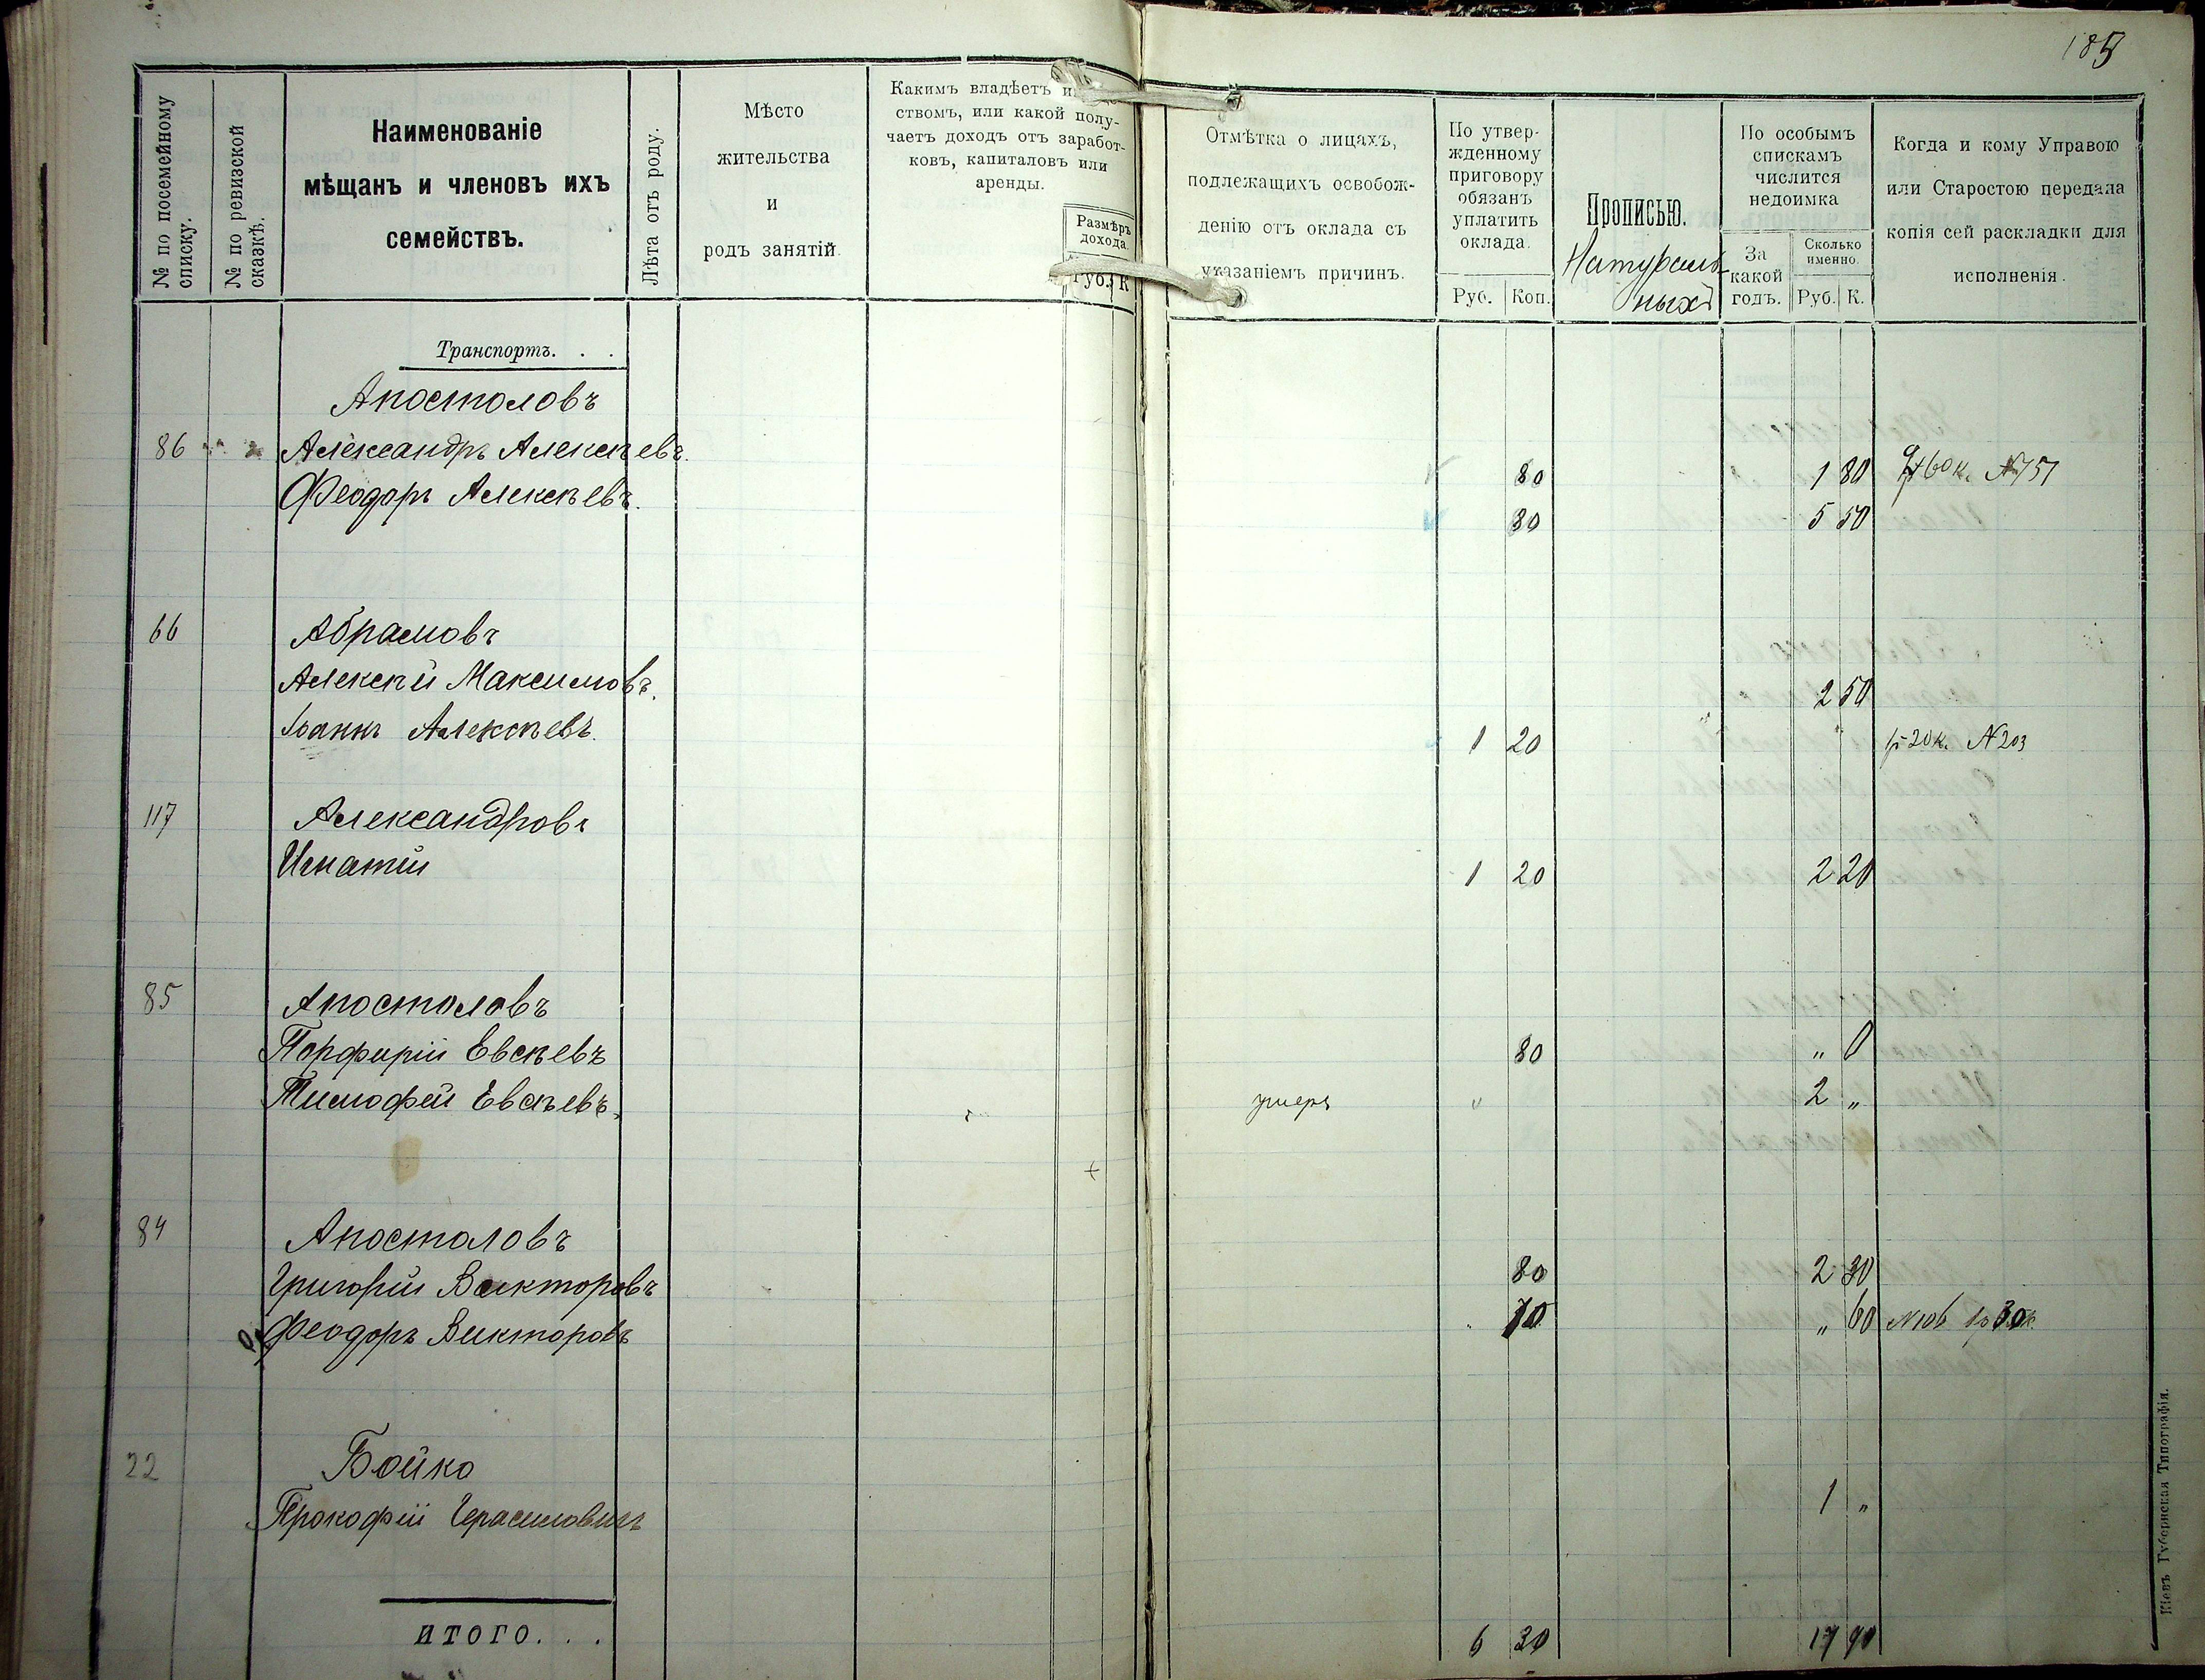 185
№ по посемейному списку.
№ по ревизской сказкѣ.
Наименованіе
мѣщанъ и членовъ ихъ
семействъ.
Лѣта отъ роду.
Мѣсто
жительства
и
родъ занятій.
Какимъ владѣетъ
ствомъ, или какой полу-
чаетъ доходъ отъ заработ-
ковъ, капиталовъ или
аренды.
Размѣръ
дохода.
Руб. К
Отмѣтка о лицахъ,
подлежащихъ освобож-
денію отъ оклада съ
указаніемъ причинъ.
По утвер-
жденному
приговору
обязанъ
уплатить
оклада.
Руб. Коп.
Прописью.
Натураль-
ныхъ
По особымъ
спискамъ
числится
недоимка
За
какой
годъ.
Сколько
именно.
Руб. К.
Когда и кому Управою
или Старостою передана
копія сей раскладки для
исполненія.
Транспортъ. . .
Апостоловъ
86 Александръ Алексѣевъ. 80 1 80 60 к. №751
Феодоръ Алексѣевъ. 80 5 50
66 Абрамовъ
Алексѣй Максимовъ. 2 50
Іоаннъ Алексѣевъ. 1 20 1р 20 к. № 203
117 Александровъ
Игнатій 1 20 2 20
85 Апостоловъ
Порфирій Евсѣевъ 80 " 0
Тимофей Евсѣевъ. умеръ " 2 "
84 Апостоловъ
Григорій Викторовъ 80 2 30
Феодоръ Викторовъ 70 " 60 №106 1р 30 к.
22 Бойко
Прокофій Герасимовичъ 1 "
ИТОГО. . . 6 30 17 90
Кіевъ Губернская Типографія.